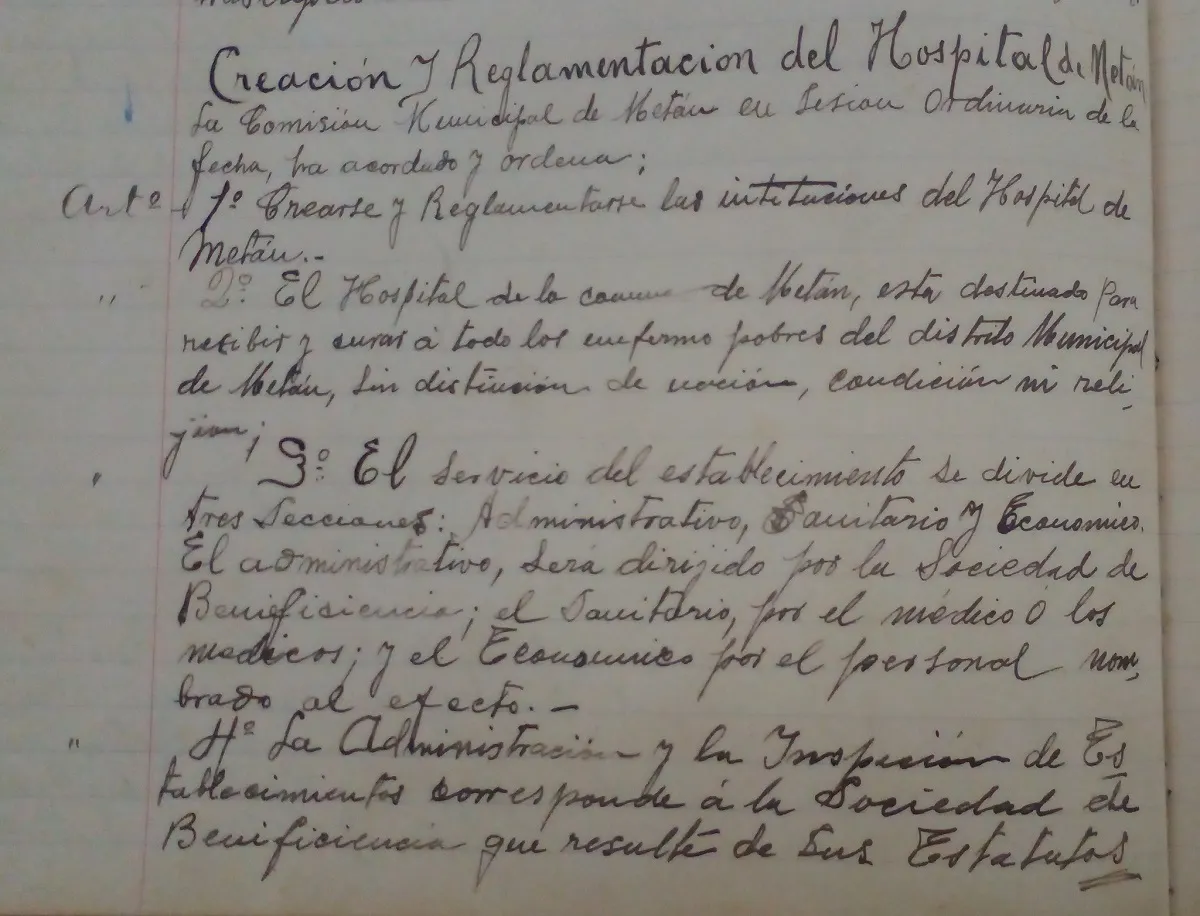 Creación y Reglamentacion del Hospital de Metán
La Comisión Municipal de Metán en Sesion Ordinaria de la
fecha, ha acordado y ordena;
Artº 1º Crearse y Reglamentarse las intituciones del Hospital de
Metán.-
" 2º. El Hospital de la comuna de Metán, está destinado para
recibir y curar á todo los enfermo pobres del distrito Municipal
de Metán, sin distinción de nación, condición ni reli,
jion;
" 3º. El servicio del establecimiento se divide en
tres Secciones: Administrativo, Sanitario y Economico.
El administrativo, será dirijido por la Sociedad de
Benificiencia; el Sanitário, por el médico ó los
medicos; y el Economico por el personal nom,
brado al efecto. -
" 4º La Administración y la Inspeción de Es
tablecimientos corresponde á la Sociedad de
Benificiencia que resulte de sus Estatutos